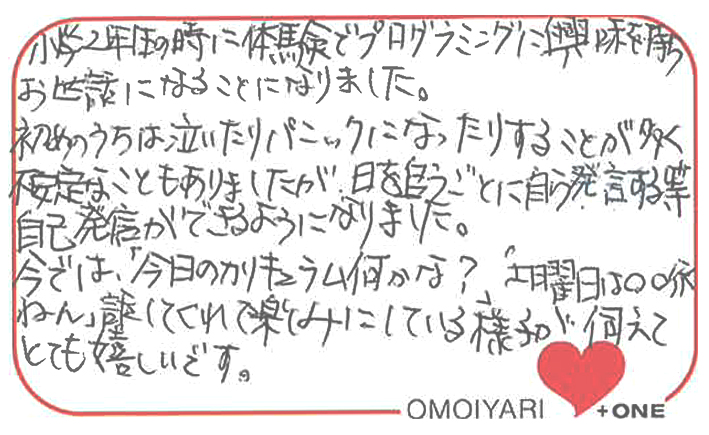 小学2年生の時に体験でプログラミングに興味を持ち
お世話になることになりました。
初めのうちは泣いたりパニックになったりすることが多く
不安定なこともありましたが、日を追うごとに自ら発言する等
自己発信ができるようになりました。
今では、「今日のカリキュラム何かな?」「土曜日は〇〇行
ねん」話してくれて楽しみにしている様子が伺えて
とても嬉しいです。
OMOIYARI +ONE